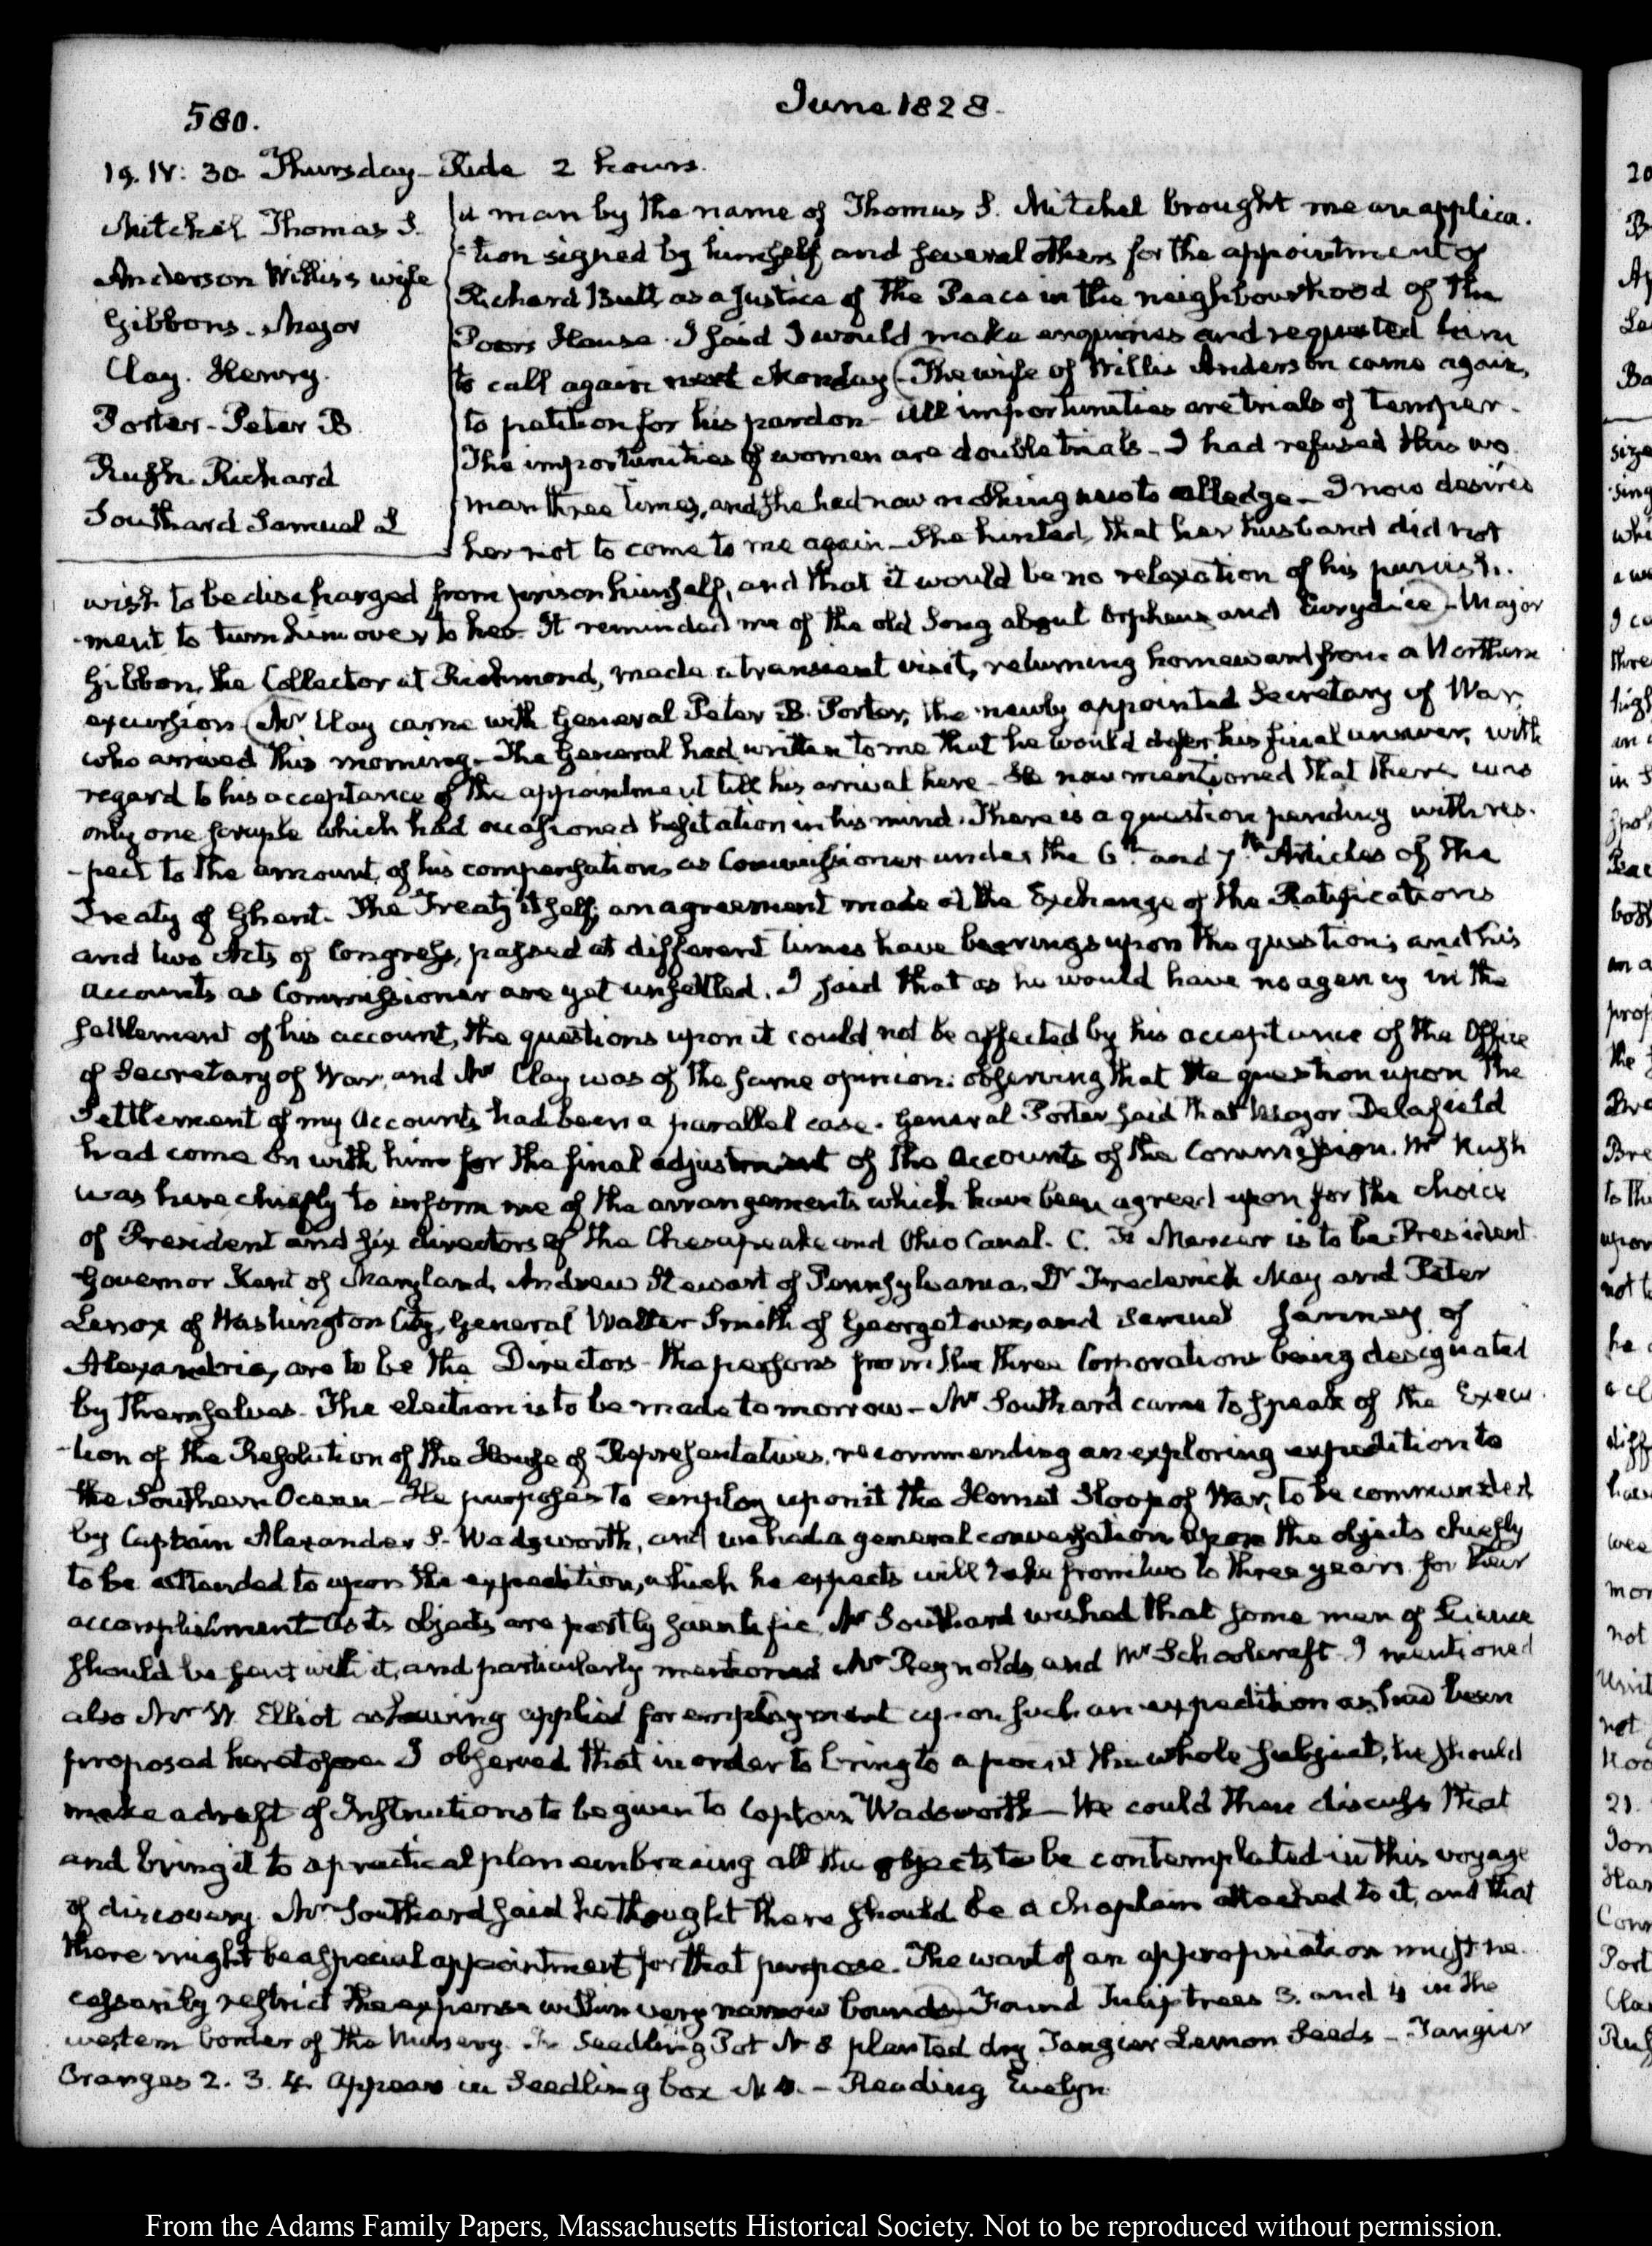 580.
June 1828.
19. IV: 30 Thursday - Ride 2 hours.
Mitchel Thomas S.
Anderson Willis's wife
Gibbons. Major
Clay. Henry.
Porter - Peter B
Rush. Richard
Southard Samuel L
A man by the name of Thomas S. Mitchel brought me an applica-
-tion signed by himself, and several others for the appointment of
Richard Butt as a Justice of the Peace in the neighbourhood of the
Poors House. I said I would make enquiries and requested him
to call again next Monday (The wife of Willis Anderson came again,
to petition for his pardon - All importunities are trials of temper.
The importunities of women are double trials - I had refused this wo
man three times, and she had now nothing new to alledge - I now desired
her not to come to me again - She hinted, that her husband did not
wish to be discharged from prison himself, and that it would be no relaxation of his punish..
-ment to turn him over to her. It reminded me of the old Song about Orpheus and Eurydice) - Major
Gibbon, the Collector at Richmond, made a transient visit, returning homeward from a Northern
excursion (Mr Clay came with General Peter B. Porter, the newly appointed Secretary of War,
who arrived this morning. The General had written to me that he would defer his final answer, with
regard to his acceptance of the appointment till his arrival here - He now mentioned that there was
only one scruple which had occasioned hesitation in his mind. There is a question pending with res-
-pect to the amount, of his compensation, as Commissioner under the 6th and 7th Articles of the
Treaty of Ghent. The Treaty itself, an agreement made at the Exchange of the Ratifications
and two Acts of Congress, passed at different times have bearings upon the question; and his
accounts as Commissioner are yet unsettled. I said that as he would have no agency in the
settlement of his account, the questions upon it could not be affected by his acceptance of the Office
of Secretary of War, and Mr Clay was of the same opinion: observing that the question upon the
Settlement of my Accounts had been a parallel case. General Porter said that Major Delafield
had come on with him for the final adjustment of the Accounts of the Commission. Mr Rush
was here chiefly to inform me of the arrangements which have been agreed upon for the choice
of President and six directors of the Chesapeake and Ohio Canal. C. F. Mercer is to be President.
Governor Kent of Maryland, Andrew Stewart of Pennsylvania, Dr Frederick May and Peter
Lenox of Washington City, General Walter Smith of Georgetown, and Samuel Janney of
Alexandria, are to be the Directors - the persons from the three Corporations being designated
by themselves. The election is to be made tomorrow - Mr Southard came to speak of the Execu
-tion of the Resolution of the House of Representatives, recommending an exploring expedition to
the Southern Ocean - He purposes to employ upon it the Hornet Sloop of War, to be commanded
by Captain Alexander S. Wadsworth, and we had a general conversation upon the objects chiefly
to be attended to upon the expedition, which he expects will take from two to three years for their
accomplishment. As its objects are partly scientific, Mr Southard wished that some men of Science
should be sent with it, and particularly mentioned Mr Reynolds, and Mr Schoolcraft. I mentioned
also Mr W. Elliot as having applied for employment upon such an expedition as had been
proposed heretofore. I observed that in order to bring to a point the whole subject, he should
make a draft of Instructions to be given to Captain Wadsworth - We could then discuss that
and bring it to a practical plan embracing all the objects to be contemplated in this voyage
of discovery. Mr Southard said he thought there should be a chaplain attached to it, and that
there might be a special appointment for that purpose. The want of an appropriation must ne-
cessarily restrict the expense within very narrow bounds) Found Tulip trees 3. and 4 in the
western border of the Nursery. In Seedling Pot N 8 planted dry Tangier Lemon Seeds - Tangier
Oranges 2. 3. 4. appear in Seedling box N 4. - Reading Evelyn.
From the Adams Family Papers, Massachusetts Historical Society. Not to be reproduced without permission.